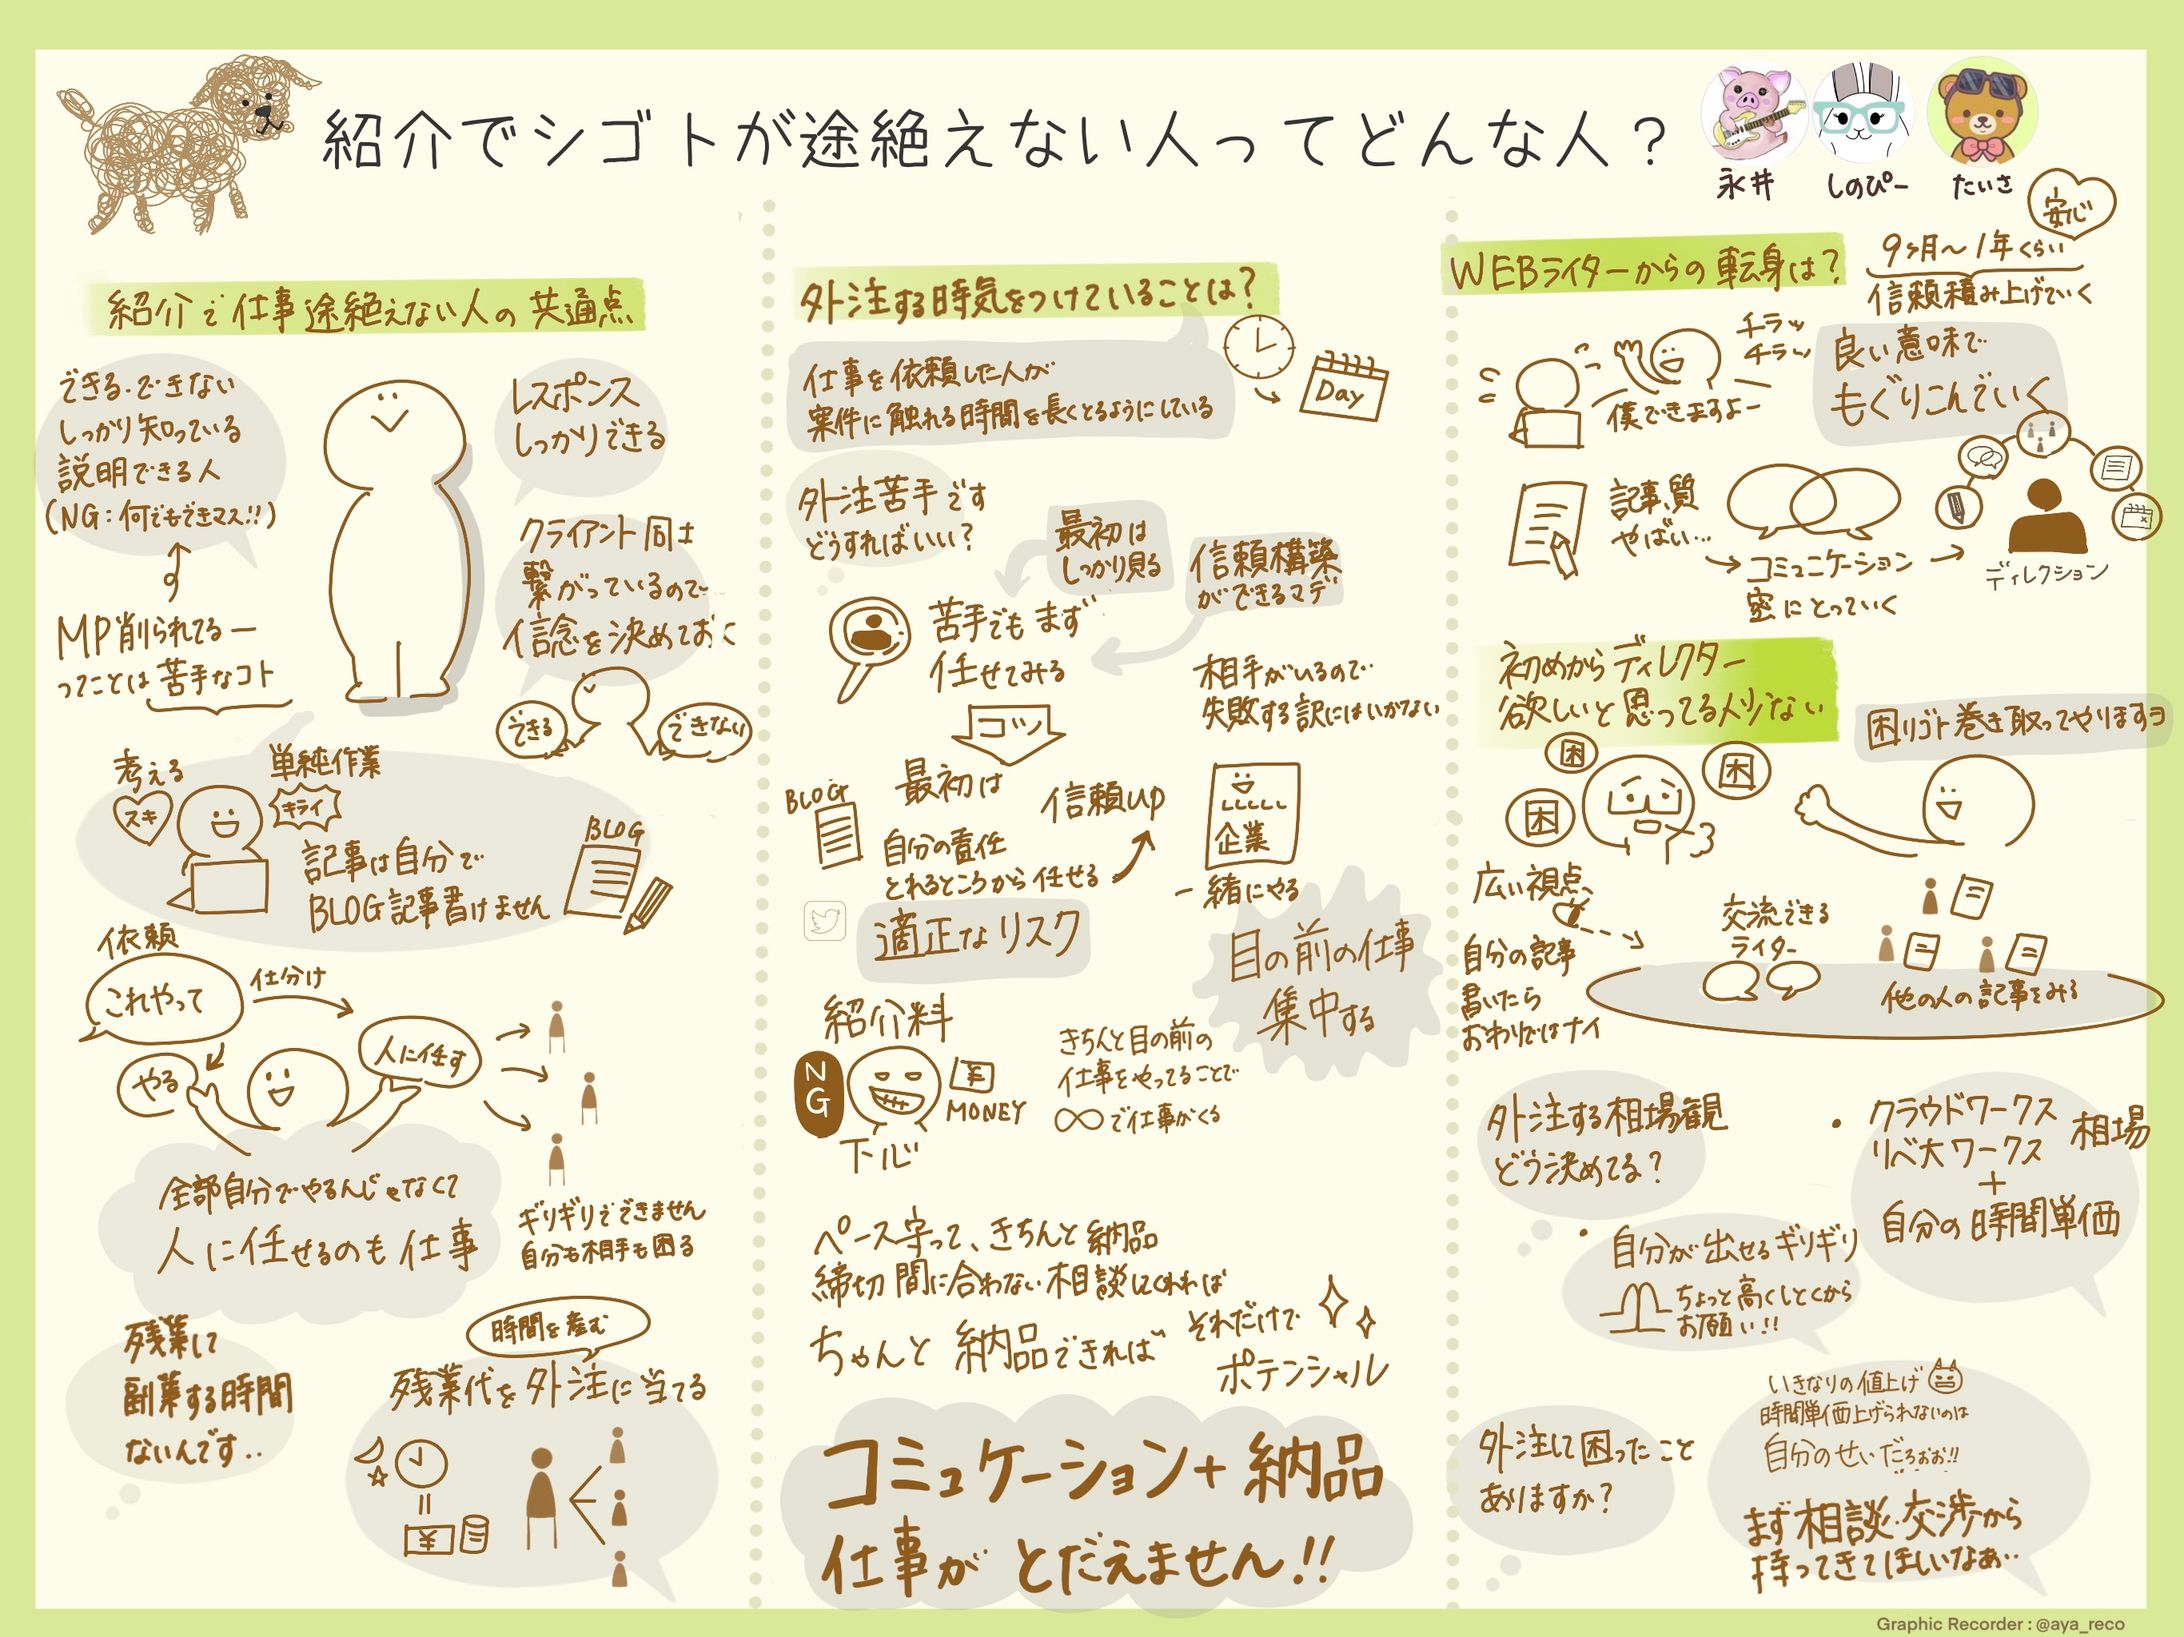 紹介でシゴトが途絶えない人ってどんな人？
永井
しのぴー
たいさ
紹介で仕事途絶えない人の共通点
できる・できない
しっかり知っている
説明できる人
(NG:何でもできマス!!)
MP削られてるー
ってことは苦手なコト
レスポンス
しっかりできる
クライアント同士
繋がっているので
信念を決めておく
できる
できない
考える
スキ
単純作業
キライ
記事は自分で
BLOG記事書けません
BLOG
依頼
これやって
仕分け
やる
人に任す
全部自分でやるんじゃなくて
人に任せるのも仕事
ギリギリでできません
自分も相手も困る
残業して
副業する時間
ないんです..
時間を産む
残業代を外注に当てる
¥
外注する時気をつけていることは？
仕事を依頼した人が
案件に触れる時間を長くとるようにしている
Day
外注苦手です
どうすればいい？
最初は
しっかり見る
信頼構築
ができるマデ
苦手でもまず
任せてみる
コツ
相手がいるので
失敗する訳にはいかない
BLOG
最初は
自分の責任
とれるところから任せる
信頼up
企業
一緒にやる
適正なリスク
目の前の仕事
集中する
紹介料
NG
¥
MONEY
下心
きちんと目の前の
仕事をやってることで
∞で仕事がくる
ペース守って、きちんと納品
締切間に合わない相談してくれれば
ちゃんと納品できれば
それだけで
ポテンシャル
コミュケーション+納品
仕事がとだえません!!
WEBライターからの転身は？
安心
9ヶ月〜1年くらい
信頼積み上げていく
チラッ
チラッ
僕できますよー
良い意味で
もぐりこんでいく
記事、質
やばい…
コミュニケーション
密にとっていく
ディレクション
初めからディレクター
欲しいと思ってる人少ない
困りゴト巻き取ってやりますヨ
困
困
困
広い視点
自分の記事
書いたら
おわりではナイ
交流できる
ライター
他の人の記事をみる
外注する相場観
どう決めてる？
・クラウドワークス
リベ大ワークス
相場
+
自分の時間単価
・自分が出せるギリギリ
ちょっと高くしとくから
お願い!!
外注して困ったこと
ありますか？
いきなりの値上げ
時間単価上げられないのは
自分のせいだろぉぉ!!
まず相談・交渉から
持ってきてほしいなぁ..
Graphic Recorder : @aya_reco